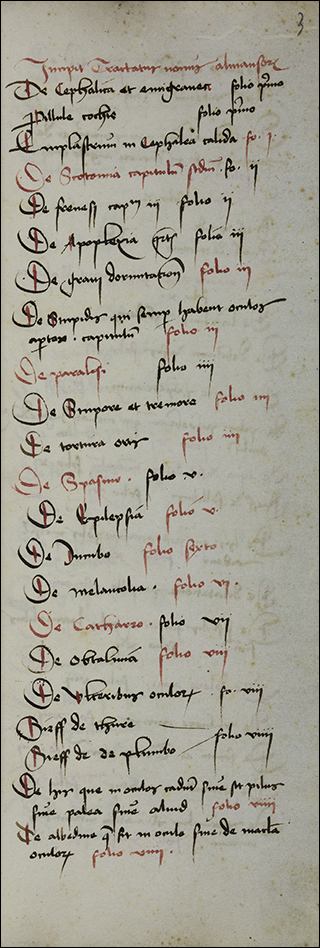 3
Incipit Tractatus nonus almansoris
De Cephalica et emigranea folio primo
Pillule cochie folio primo
Emplastrum in Cephalea calida fo. i
De Scotomia capitulum secundum. fo. ii
De frenesi cap iii folio ii
De Apoplexia folio iii
De gravi dormitatione folio iii
De Stupidis qui semper habent oculos
apertos. capitulum folio iii
De paralisi folio iiii
De Stupore et tremore folio iiii
De tortura oris folio iiii
De Spasmo. folio v.
De Epilepsia folio v.
De Incubo folio sexto
De melancolia. folio vi.
De Catharro. folio vii
De Obtalmia folio viii
De Vlceribus oculorum fo. viii
Sieff de thure
Sieff de de plumbo folio viiii
De hijs que in oculos cadunt siue sit pilus
siue palea siue aliud folio viiii
De albedine que fit in oculo siue de macula
oculorum folio viiii.